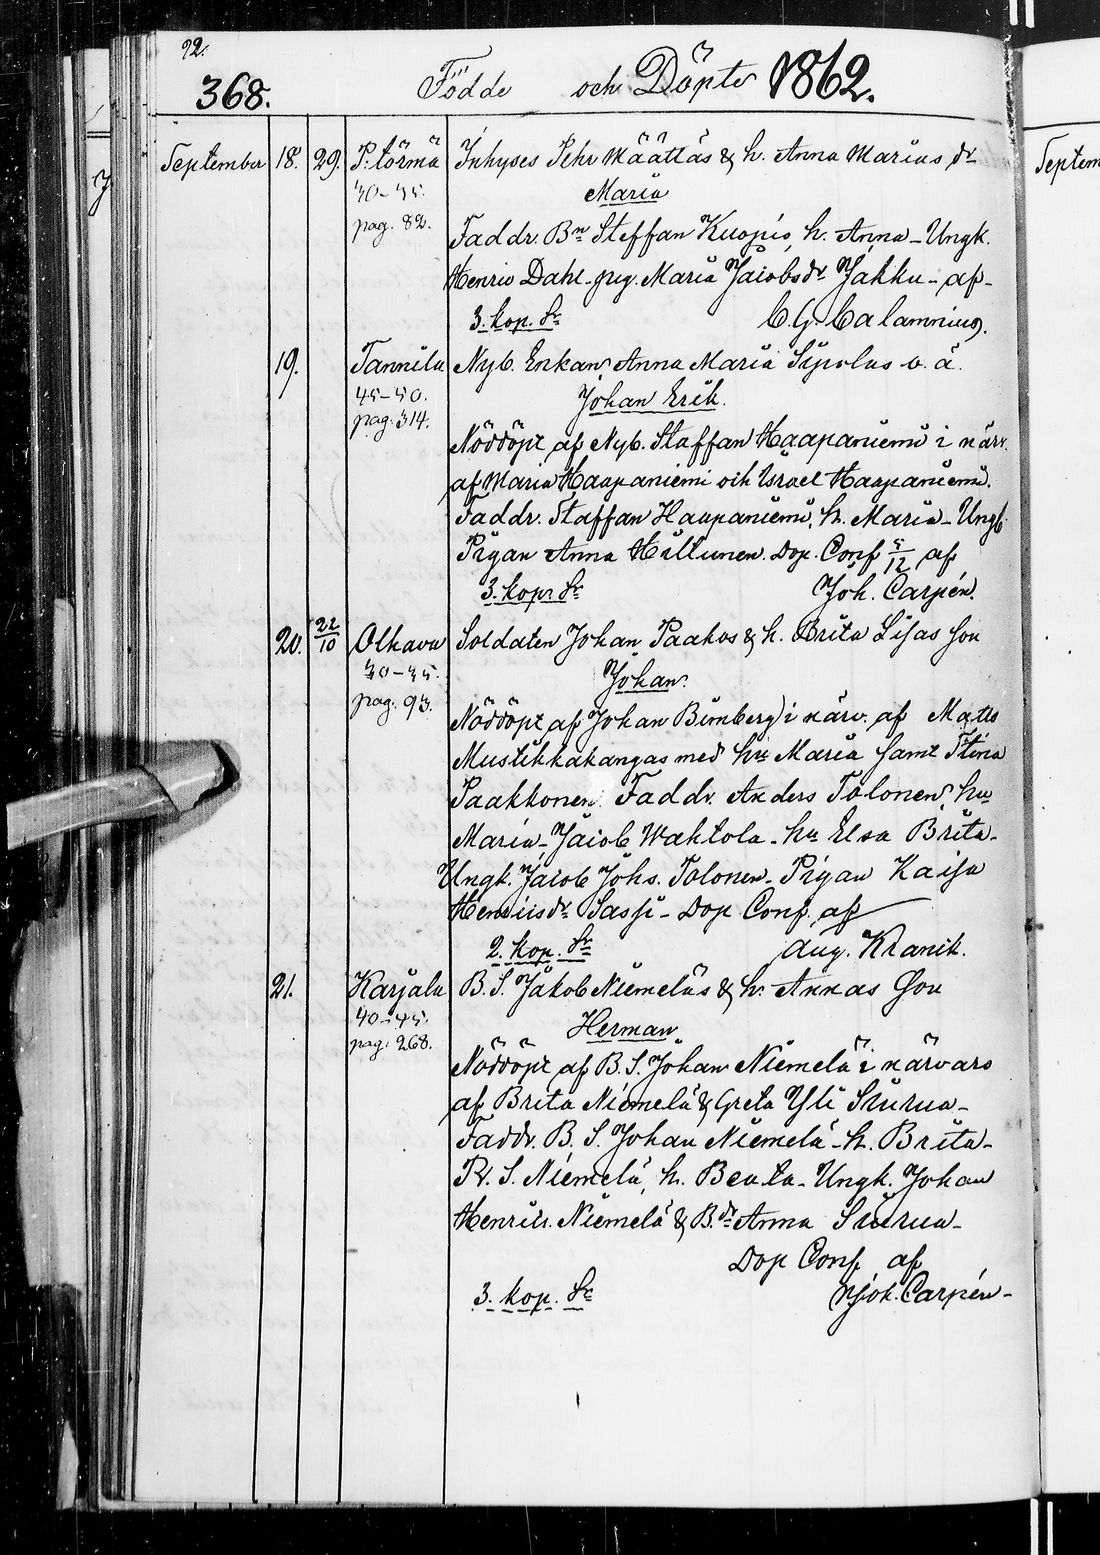 92.
368. Födde och Döpte 1862.
September 18. 29. P. törmä Inhyses Pehr Määttäs & h. Anna Marias dr
30-35. Maria
pag. 82. Faddr. Bn Steffan Kuopio, h. Anna - Ungk.
Henric Dahl - pig. Maria Jacobsdr Jakku - af -
3. kop. Sr C. G. Calamnius.
19. Tannila Nyb. Enkan Anna Maria Sipolas o. ä.
45-50. Johan Erik.
pag. 314.
Nöddöpt af Nyb. Staffan Haapaniemi i närv.
af Maria Haapaniemi och Israel Haapaniemi.
Faddr. Staffan Haapaniemi, h. Maria - Ungk.
Pigan Anna Hiltunen. Dop. Conf 5/12 af
3. kop. Sr Joh. Carpén.
20. 22/10 Olhava Soldaten Johan Paakos & h. Brita Lisas son
30-35. Johan.
pag. 93.
Nöddöpt af Johan Bimberg i närv. af Matts
Mustikkakangas med hu Maria samt Stina
Paakkonen. Faddr. Anders Tolonen, hu
Maria - Jacob Wahtola - hu Elsa Brita -
Ungk. Jacob Johs. Tolonen - Pigan Kaisa
Henricsdr Sassi - Dop Conf. af
2. kop. Sr Aug. Kranck.
21. Karjala B. S. Jakob Niemeläs & h. Annas son
40-45. Herman
pag. 268.
Nöddöpt af B. S. Johan Niemelä i närvaro
af Brita Niemelä & Greta Yli Siurua -
Faddr. B. S. Johan Niemelä - h. Brita -
B. S. Niemelä, h. Beata - Ungk. Johan
Henrik Niemelä & B. dr Anna Siurua -
Dop Conf af
3. kop. Sr Joh. Carpén -
J
Septem